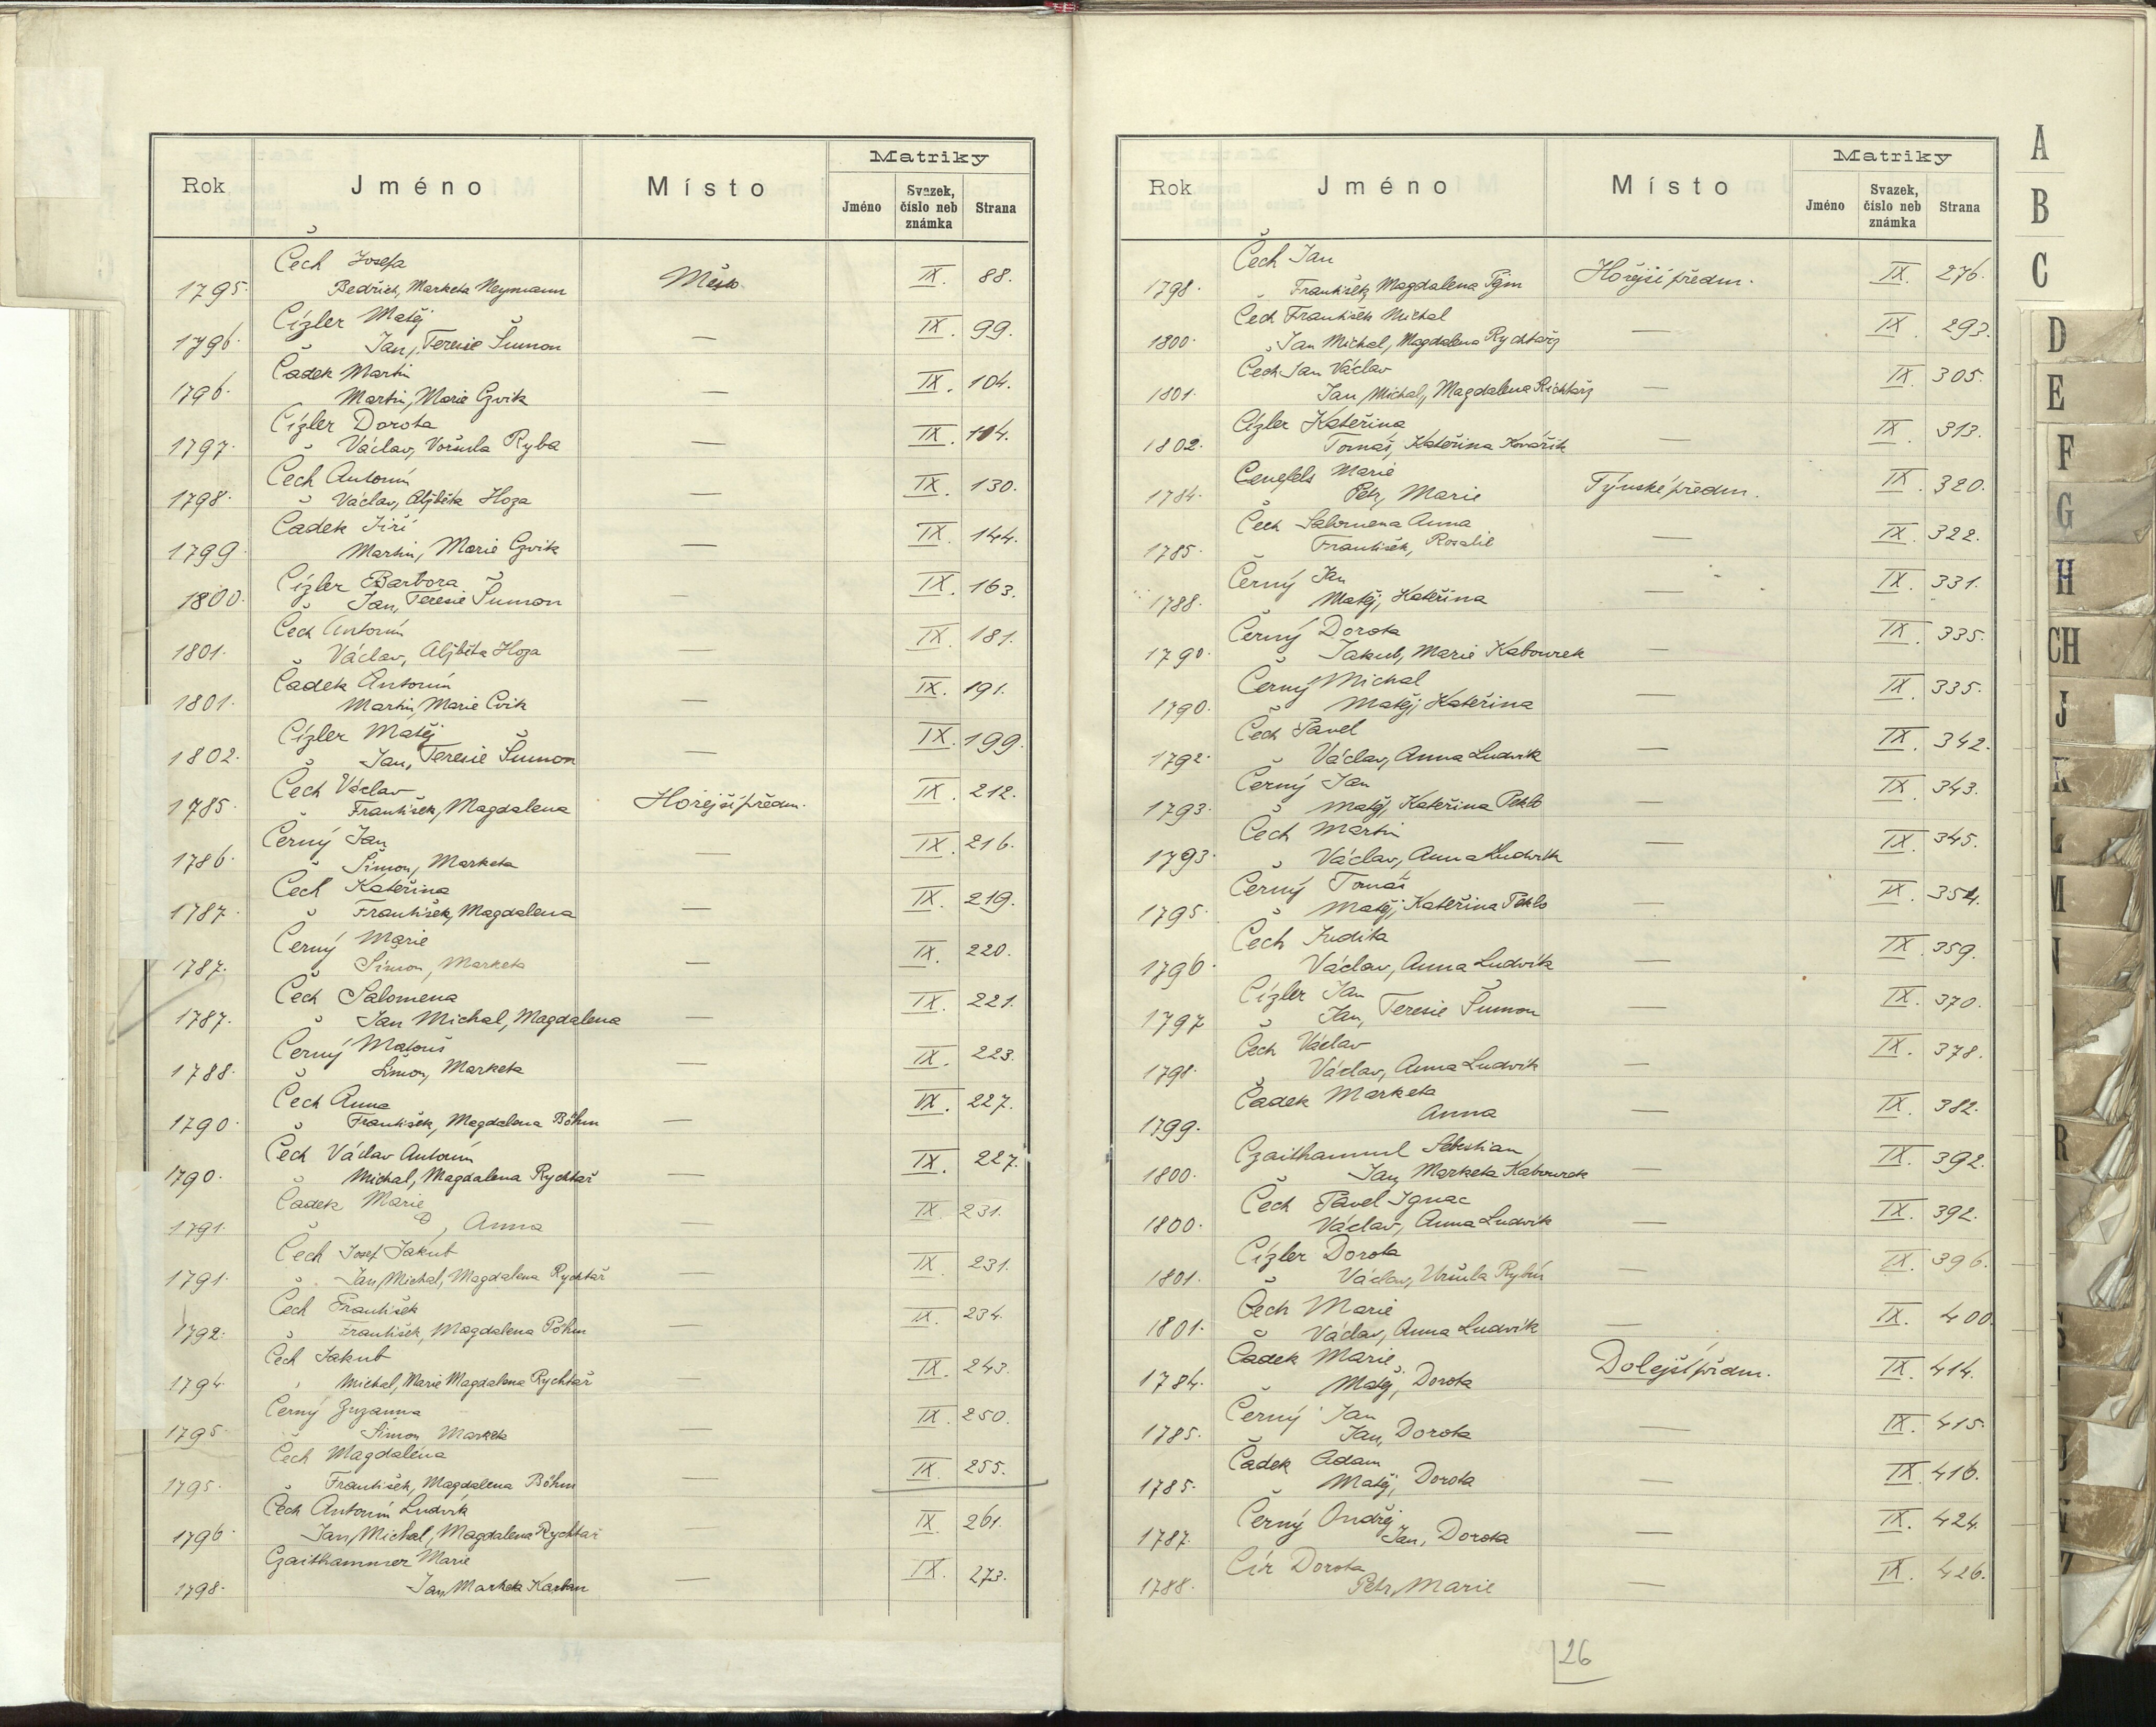 Rok Jméno Místo Matriky
Jméno Svazek, číslo neb známka Strana
Čech Josefa
1795. Bedřich, Marketa Neymann Město. IX. 88.
Cízler Matěj
1796. Jan, Teresie Šumon — IX. 99.
Čadek Martin
1796. Martin, Marie Cvik — IX. 104.
Cízler Dorota
1797. Václav, Voršula Ryba — IX. 114.
Čech Antonín
1798. Václav, Aljběta Hoza — IX. 130.
Čadek Jiří
1799. Martin, Marie Cvik — IX. 144.
Cízler Barbora
1800. Jan, Teresie Šumon — IX. 163.
Čech Antonín
1801. Václav, Aljběta Hoza — IX. 181.
Čadek Antonín
1801. Martin, Marie Cvik — IX. 191.
Cízler Matěj
1802. Jan, Teresie Šumon — IX. 199.
Čech Václav
1785. František, Magdalena Hořejší předm. IX. 212.
Černý Jan
1786. Šimon, Marketa — IX. 216.
Čech Kateřina
1787. František, Magdalena — IX. 219.
Černý Marie
1787. Šimon, Marketa — IX. 220.
Čech Salomena
1787. Jan Michal, Magdalena — IX. 221.
Černý Matouš
1788. Šimon, Marketa — IX. 223.
Čech Anna
1790. František, Magdalena Böhm — IX. 227.
Čech Václav Antonín
1790. Michal, Magdalena Rychtář — IX. 227.
Čadek Marie
1791. D, Anna — IX. 231.
Čech Josef Jakub
1791. Jan Michal, Magdalena Rychtář — IX. 231.
Čech František
1792. František, Magdalena Böhm — IX. 234.
Čech Jakub
1794. Michal, Marie Magdalena Rychtář — IX. 243.
Černý Zuzanna
1795. Šimon Marketa — IX. 250.
Čech Magdalena
1795. František, Magdalena Böhm — IX. 255.
Čech Antonín Ludvík
1796. Jan Michal, Magdalena Rychtář — IX. 261
Czaithammer Marie
1798. Jan, Marketa — IX. 273.
Rok Jméno Místo Matriky
Jméno Svazek, číslo neb známka Strana
Čech Jan
1798. František, Magdalena Hořejší předm. IX. 276.
Čech František Michal
1800. Jan Michal, Magdalena Rychtář — IX. 293.
Čech Jan Václav
1801. Jan Michal, Magdalena Richtář — IX. 305.
Cízler Kateřina
1802. Tomáš, Kateřina Kovářík — IX. 313.
Cenefels Marie
1784. Petr, Marie Týnské předm. IX. 320.
Čech Salomena Anna
1785. František, Rosalie — IX. 322.
Černý Jan
1788. Matěj, Kateřina — IX. 331.
Černý Dorota
1790. Jakub, Marie Kabourek — IX. 335.
Černý Michal
1790. Matěj, Kateřina — IX. 335.
Čech Pavel
1792. Václav, Anna Ludvík — IX. 342.
Černý Jan
1793. Matěj, Kateřina Peklo — IX. 343.
Čech Martin
1793. Václav, Anna Ludvík — IX. 345.
Černý Tomáš
1795. Matěj, Kateřina Peklo — IX. 354.
Čech Judita
1796. Václav, Anna Ludvík — IX. 359.
Cízler Jan
1797 Jan, Teresie Šumon — IX. 370.
Čech Václav
1798. Václav, Anna Ludvík — IX. 378.
Čadek Marketa
1799. Anna — IX. 382.
Czaithamml Sebestian
1800. Jan, Marketa Kabourek — IX. 392.
Čech Pavel Ignac
1800. Václav, Anna Ludvík — IX. 392.
Cízler Dorota
1801. Václav, Uršula — IX. 396.
Čech Marie
1801. Václav, Anna Ludvík — IX. 400.
Čadek Marie
1784. Matěj, Dorota Dolejší předm. IX. 414.
Černý Jan
1785. Jan, Dorota — IX. 415.
Čadek Adam
1785. Matěj, Dorota — IX. 416.
Černý Ondřej
1787. Jan, Dorota — IX. 424.
Cír Dorota
1788. Petr, Marie — IX. 426.
26
A
B
C
D
E
F
G
H
CH
J
K
L
M
N
R